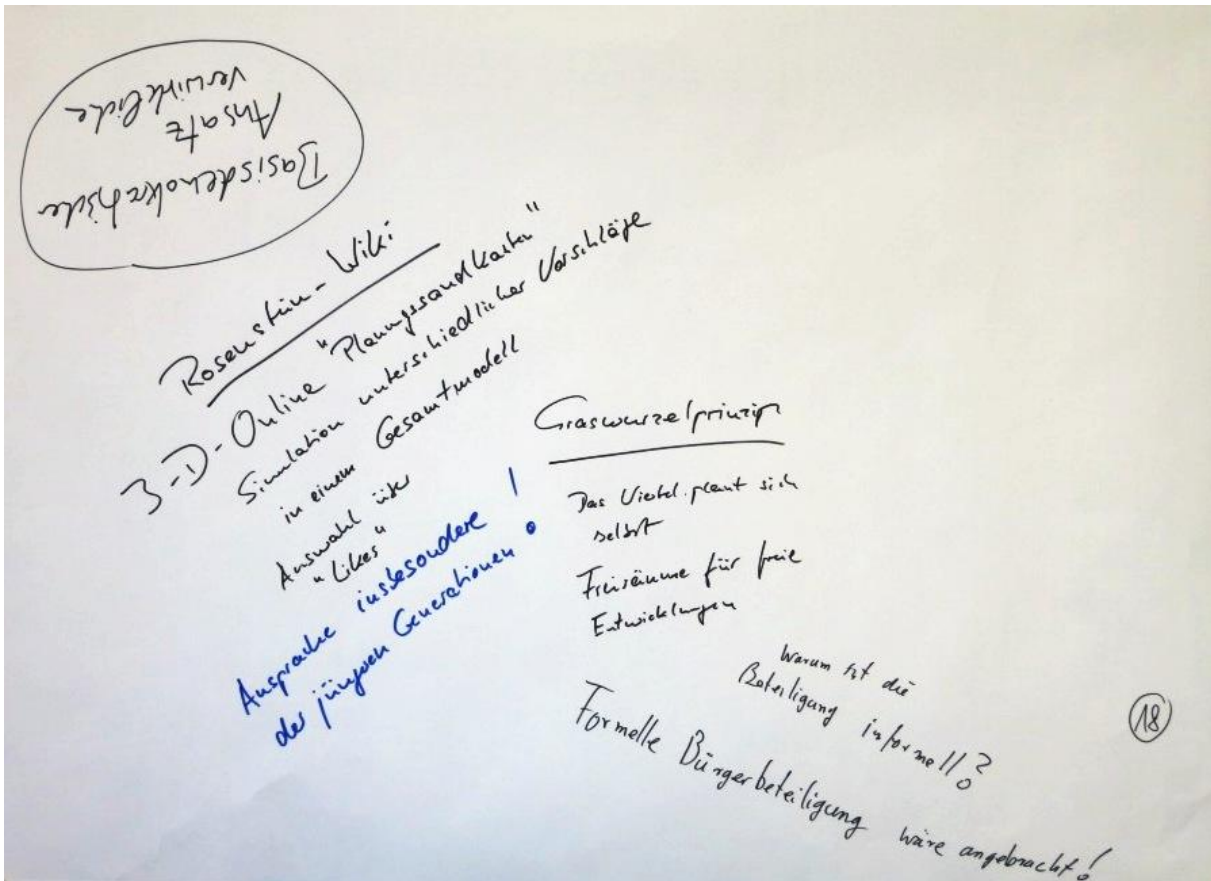 Basisdemokratischer
Ansatz
verwirkliche
Rosenstein-Wiki
3-D-Online "Planungssandkasten"
Simulation unterschiedlicher Vorschläge
in einem Gesamtmodell
Auswahl über
"Likes"
Ansprache insbesondere
der jüngeren Generationen!
Graswurzelprinzip
Das Viertel plant sich
selbst
Freiräume für freie
Entwicklungen
Warum ist die
Beteiligung informell?
Formelle Bürgerbeteiligung wäre angebracht!
18